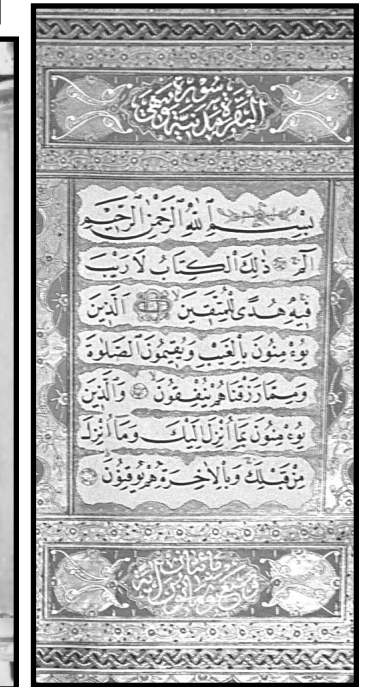 سورة
البقرة مدنية وهي
بسم الله الرحمن الرحيم
الم ذٰلك الكتاب لا ريب
فيه هدى للمتقين الذين
يؤمنون بالغيب ويقيمون الصلوة
ومما رزقناهم ينفقون والذين
يؤمنون بما انزل اليك وما انزل
من قبلك وبالاخرة هم يوقنون
مائتان
وست وثمانون اية